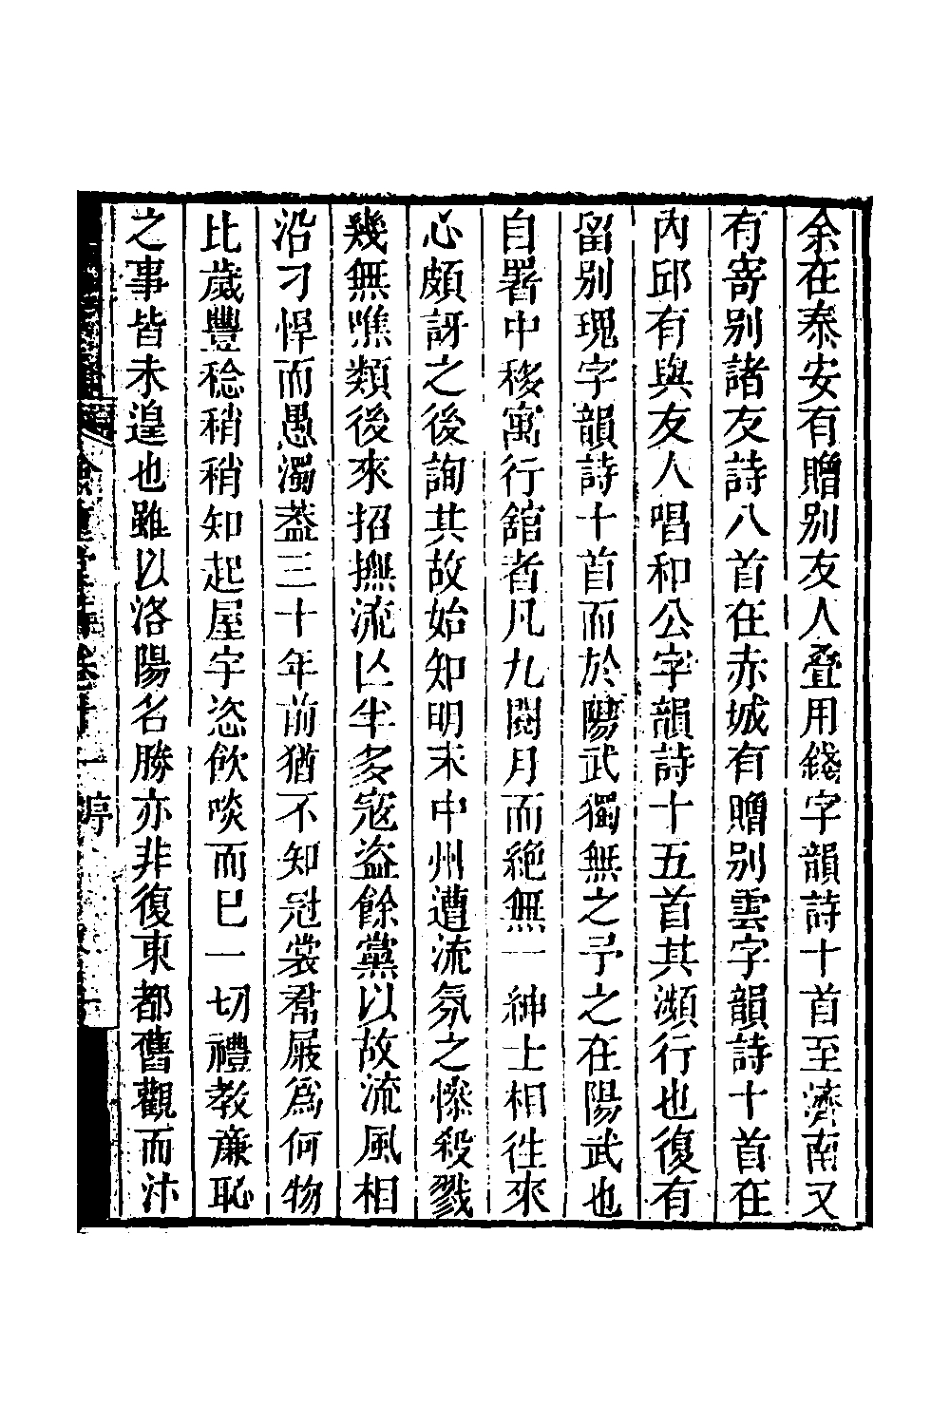 余在泰安有贈别友人叠用錢字韻詩十首至濟南又
有寄别諸友詩八首在赤城有贈别雲字韻詩十首在
内邱有與友人唱和公字韻詩十五首其瀕行也復有
留别瑰字韻詩十首而於陽武獨無之予之在陽武也
自署中移寓行舘者凡九閱月而絶無一紳士相徃來
心頗訝之後詢其故始知明末中州遭流氛之慘殺戮
幾無噍類後來招撫流亾半多寇盗餘黨以故流風相
沿刁悍而愚濁葢三十年前猶不知冠裳君嚴爲何物
比歲豐稔稍稍知起屋宇恣飲啖而已一切禮教亷恥
之事皆未遑也雖以洛陽名勝亦非復東都舊觀而汴
序